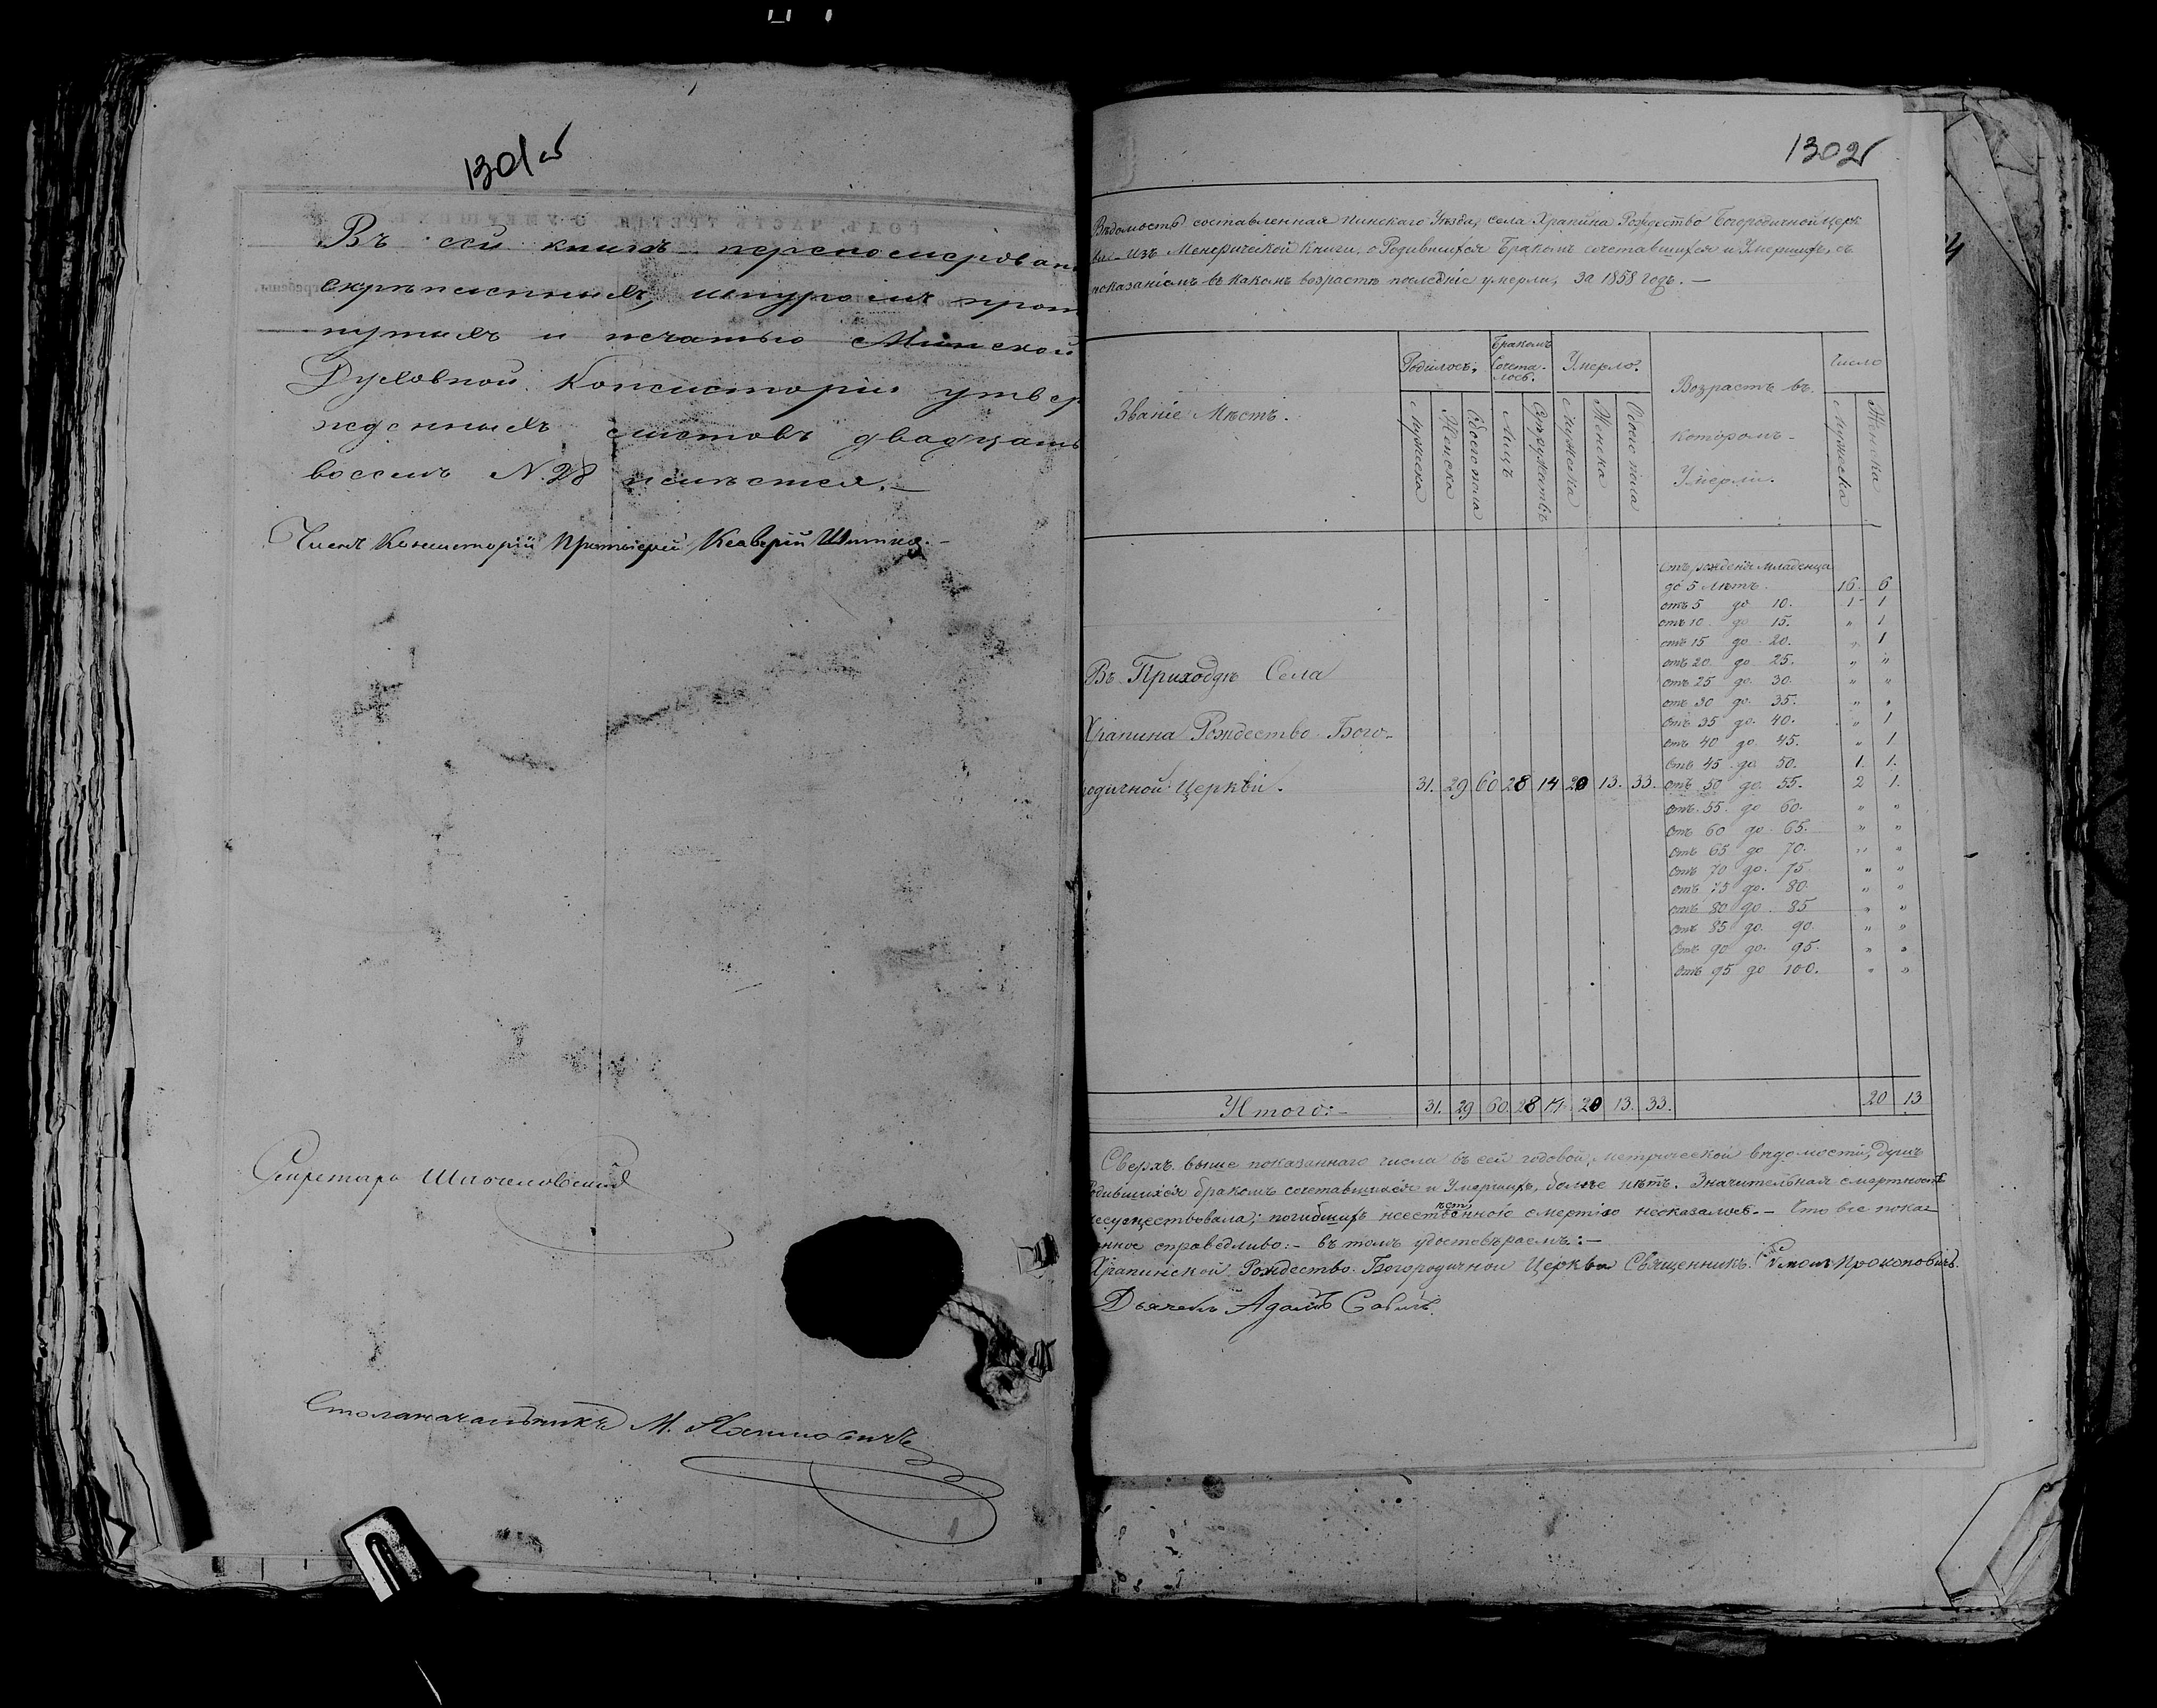 1301 об
Въ сей книгѣ перенумерован
скрѣпленныхъ, шнуромъ прот
нутыхъ и печатью Минской
Духовной Консисторіи утвер
жденныхъ листовъ двадцать
восемь N. 28 имѣется.
Членъ Консисторіи Протоіерей
Секретарь
Столоначальникъ М.
1302
Вѣдомость составленная Пинскаго Уѣзда, села Храпина Рождество Богородичной Церк
Изъ Метрической Книги, о Родившихся Бракомъ сочетавшихся и Умершихъ, съ
показаніемъ въ какомъ возрастѣ послѣдніе умерли, за 1858 годъ. —
Званіе Мѣстъ.
Родилось,
Бракомъ Сочета-лось.
Умерло.
Возрастъ въ
которомъ
Умерли.
Число
Мужеска
Женска
Обоего пола
Лицъ
Супружествъ
Мужеска
Женска
Обоего пола
Мужеска
Женска
Отъ рожденія младенца
до 5 Лѣтъ. 16. 6
отъ 5 до 10. 1 1
отъ 10 до 15. " 1
отъ 15 до 20. " 1
отъ 20 до 25. " "
отъ 25 до 30. " "
отъ 30 до 35. " "
отъ 35 до 40. " 1
отъ 40 до 45. " 1
отъ 45 до 50. 1. 1.
отъ 50 до 55. 2 1.
отъ 55. до 60. " "
отъ 60 до 65. " "
отъ 65 до 70. " "
отъ 70 до 75 " "
отъ 75 до 80. " "
отъ 80 до 85 " "
отъ 85 до 90. " "
отъ 90 до 95. " "
отъ 95 до 100. " "
Въ Приходѣ Села
Храпина Рождество Бого-
родичной Церкви. 31. 29 60 28 14 20 13. 33.
Итого:- 31. 29 60. 28 14. 20 13. 33. 20 13
Сверхъ выше показаннаго числа въ сей годовой, метрической вѣдомости, душъ
одившихся бракомъ сочетавшихся и Умершихъ, болѣе нѣтъ. Значительная смертность
несуществовала; погибшихъ смертію неоказалось. — Что все показ
нное справедливо:- въ томъ удостовѣряемъ:-
Храпинской Рождество Богородичной Церкви Священникъ Прокоповичъ.
Дьячекъ Адамъ Савичъ.